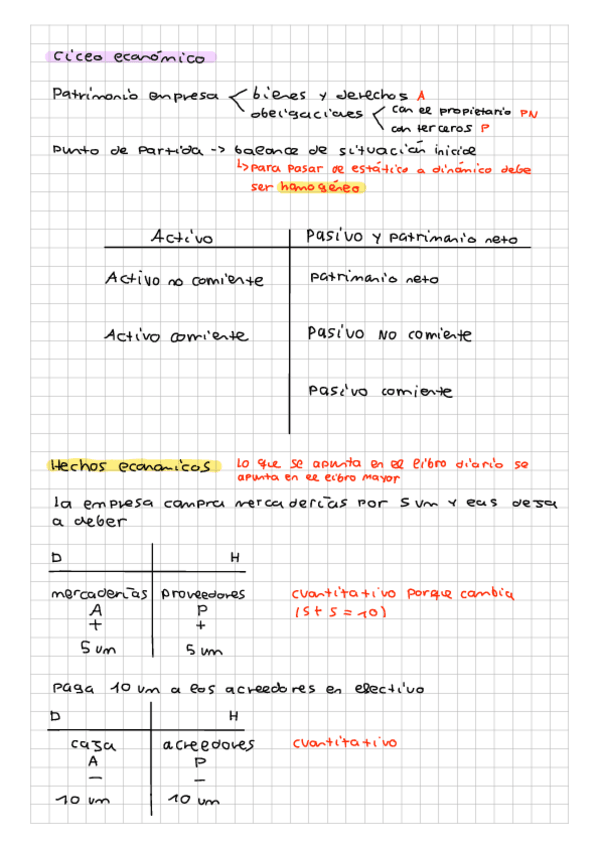 Ciclo económico
Patrimonio empresa < bienes y derechos A
obligaciones < con el propietario PN
con terceros P
Punto de partida -> balance de situación inicial
↳ para pasar de estático a dinámico debe
ser homogéneo
Activo | Pasivo y patrimonio neto
Activo no corriente | Patrimonio neto
Activo corriente | Pasivo no corriente
Pasivo corriente
Hechos economicos Lo que se apunta en el libro diario se
apunta en el libro mayor
La empresa compra mercaderías por 5 um y las deja
a deber
D | H
mercaderías | proveedores cuantitativo porque cambia
A | P (5+5=10)
+ | +
5 um | 5 um
Paga 10 um a los acreedores en efectivo
D | H
caja | acreedores cuantitativo
A | P
− | −
10 um | 10 um